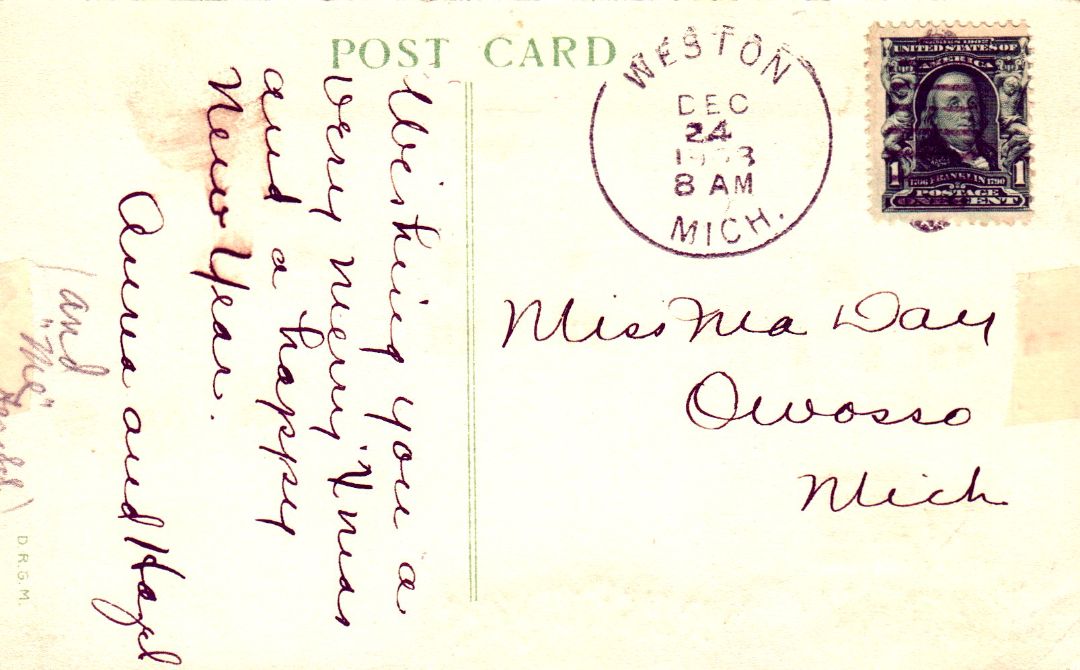 POST CARD
WESTON
DEC
24
8 AM
MICH.
SERIES 1902
UNITED STATES OF
AMERICA
1 1
1706 FRANKLIN 1790
POSTAGE
ONE CENT
Wishing you a
very merry Xmas
and a happy
New Year.
Anna and Hazel
(and
"Me"
Miss Ina Day
Owosso
Mich
D.R.G.M.